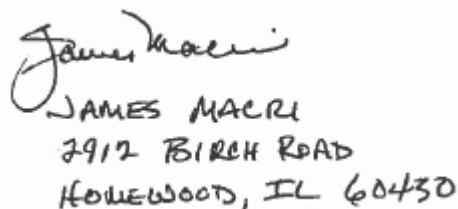 James Macri
JAMES MACRI
2912 BIRCH ROAD
HOMEWOOD, IL 60430